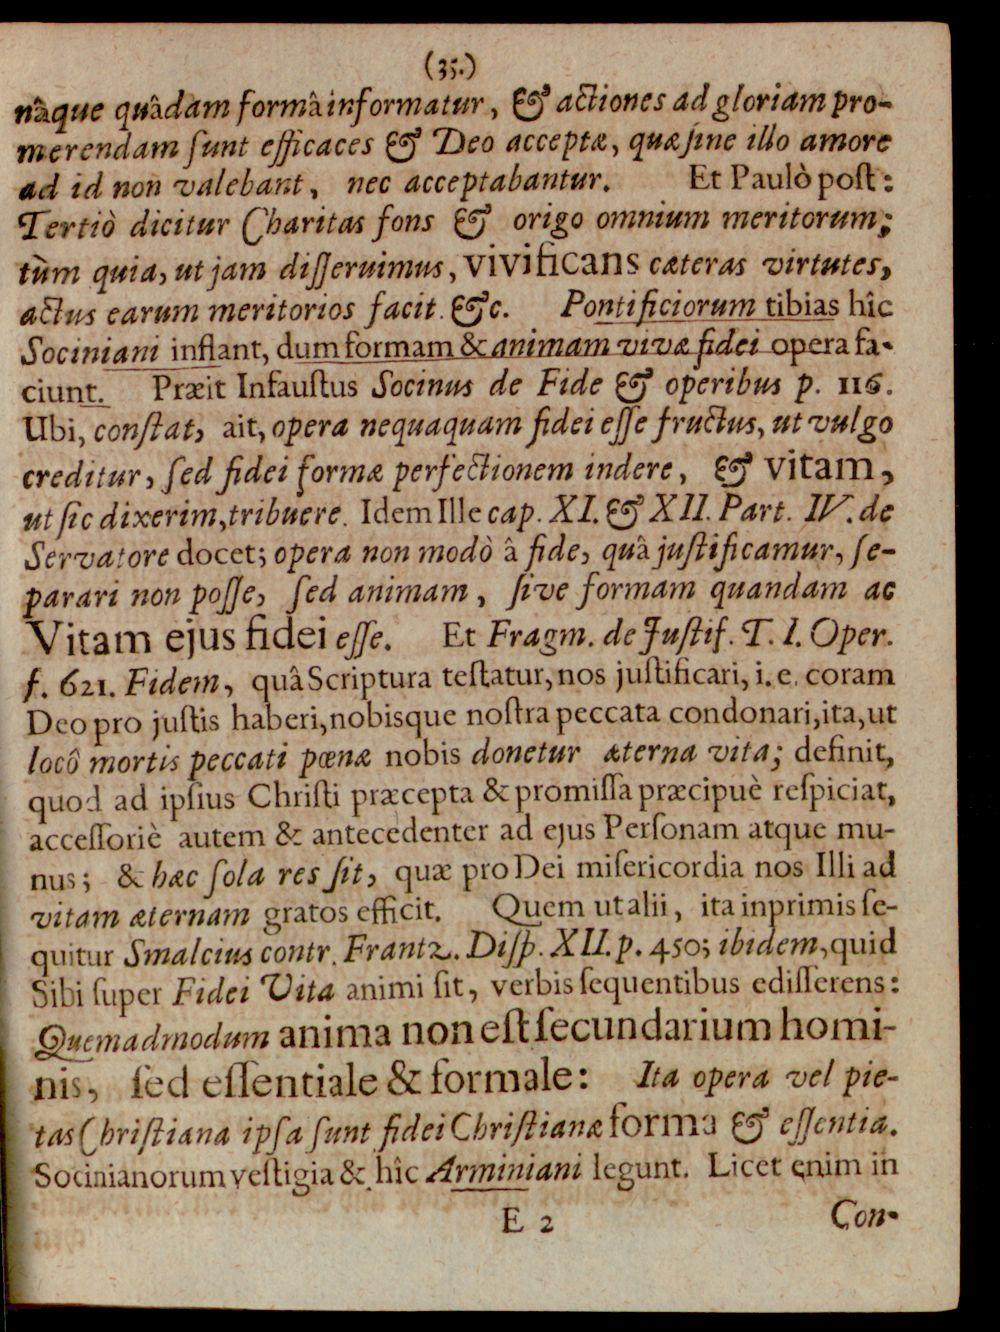 (35.)
nâque quâdam formâ informatur, & actiones ad gloriam pro-
merendam ſunt efficaces & Deo acceptæ, quæ ſine illo amore
ad id non valebant, nec acceptabantur. Et Paulò poſt:
Tertiò dicitur Charitas fons & origo omnium meritorum;
tùm quia, ut jam diſſeruimus, vivificans cæteras virtutes,
actus earum meritorios facit. &c. Pontificiorum tibias hîc
Sociniani inflant, dum formam & animam vivæ fidei opera fa-
ciunt. Præit Infauſtus Socinus de Fide & operibus p. 116.
Ubi, conſtat, ait, opera nequaquam fidei eſſe fructus, ut vulgo
creditur, ſed fidei formæ perfectionem indere, & vitam,
ut ſic dixerim, tribuere. Idem Ille cap. XI. & XII. Part. IV. de
Servatore docet; opera non modò â fide, quâ juſtificamur, ſe-
parari non poſſe, ſed animam, ſive formam quandam ac
Vitam ejus fidei eſſe. Et Fragm. de Juſtif. T. I. Oper.
f. 621. Fidem, quâ Scriptura teſtatur, nos juſtificari, i. e. coram
Deo pro juſtis haberi, nobisque noſtra peccata condonari, ita, ut
locô mortis peccati pœnæ nobis donetur æterna vita; definit,
quod ad ipſius Chriſti præcepta & promiſſa præcipuè reſpiciat,
acceſſoriè autem & antecedenter ad ejus Perſonam atque mu-
nus; & hæc ſola res ſit, quæ pro Dei miſericordia nos Illi ad
vitam æternam gratos efficit. Quem ut alii, ita inprimis ſe-
quitur Smalcius contr. Frantz. Diſp. XII. p. 450; ibidem, quid
Sibi ſuper Fidei Vita animi ſit, verbis ſequentibus ediſſerens:
Quemadmodum anima non eſt ſecundarium homi-
nis, ſed eſſentiale & formale: Ita opera vel pie-
tas Chriſtiana ipſa ſunt fidei Chriſtianæ forma & eſſentia.
Socinianorum veſtigia & hîc Arminiani legunt. Licet enim in
E 2 Con-